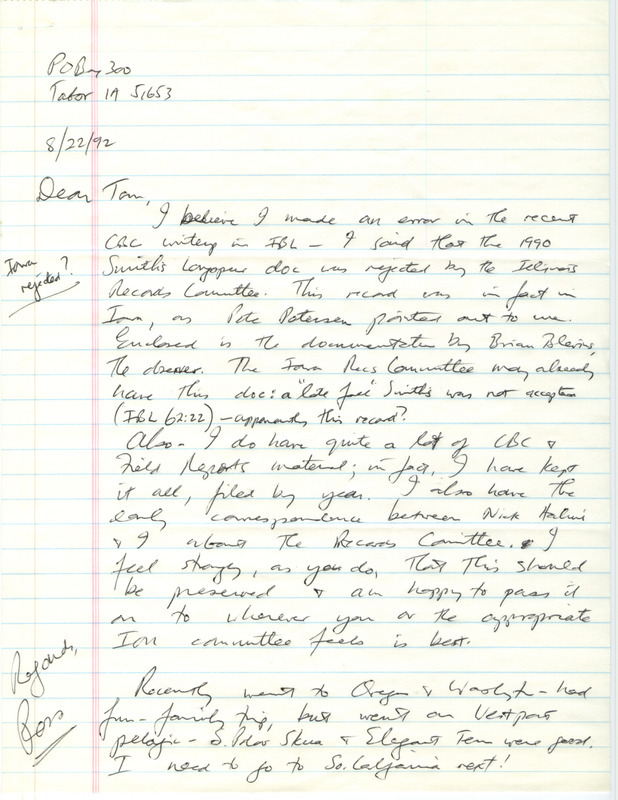 PO Box 300
Tabor IA 51653
8/22/92
Dear Tom,
I believe I made an error in the recent
CBC writing in IBL – I said that the 1990
Smith's Longspur doc was rejected by the Illinois
Records Committee. This record was in fact in
Iowa, as Pete Petersen pointed out to me.
Enclosed is the documentation by Brian Blevins,
the observer. The Iowa Recs Committee may already
have this doc: a "late fall" Smith's was not accepted
(IBL 62:22) – apparently this record?
Iowa
rejected?
Also – I do have quite a lot of CBC &
Field Reports material; in fact, I have kept
it all, filed by year. I also have the
early correspondence between Nick Halmi
& I about the Records Comittee. I
feel strongly, as you do, that this should
be preserved & am happy to pass it
on to wherever you or the appropriate
IOU committee feels is best.
Recently went to Oregon & Washgtn – had
fun – family trip, but went on Westport
pelagic – S. Polar Skua & Elegant Tern were good.
I need to go to So. California next!
Regards,
Ross